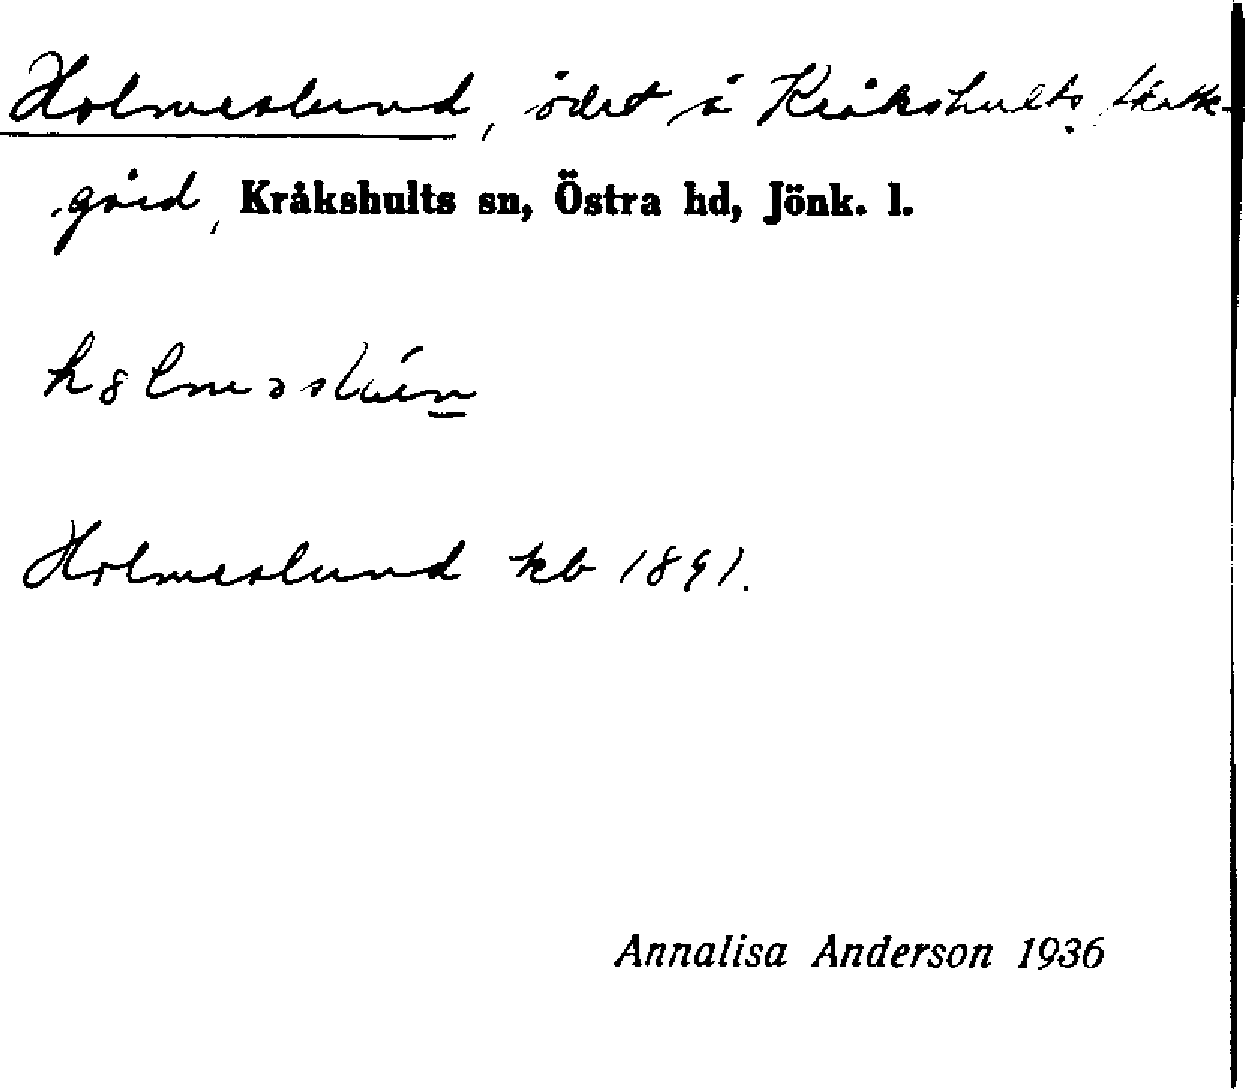 Holmeslund, ödet å Kråkshults Skatte-
gård, Kråkshults sn, Östra hd, Jönk. l.
Holmeslund kb 1891.
Annalisa Anderson 1936